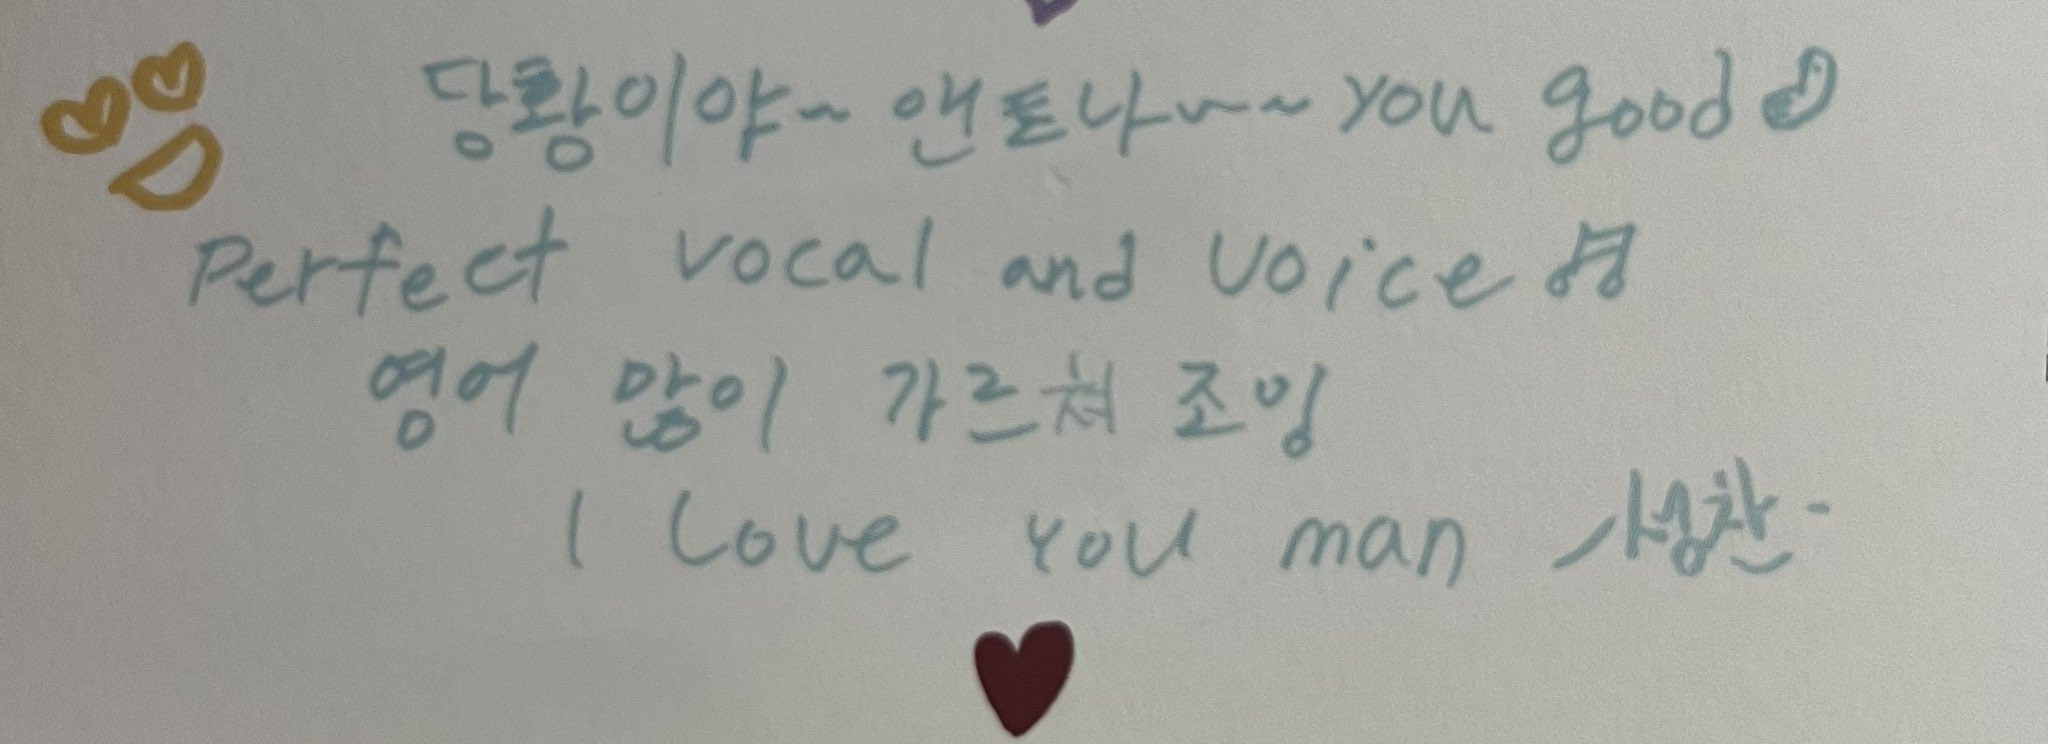 당황이야~ 앤토나~~ you good
Perfect vocal and voice
영어 많이 가르쳐 조잉
I Love you man 성찬-